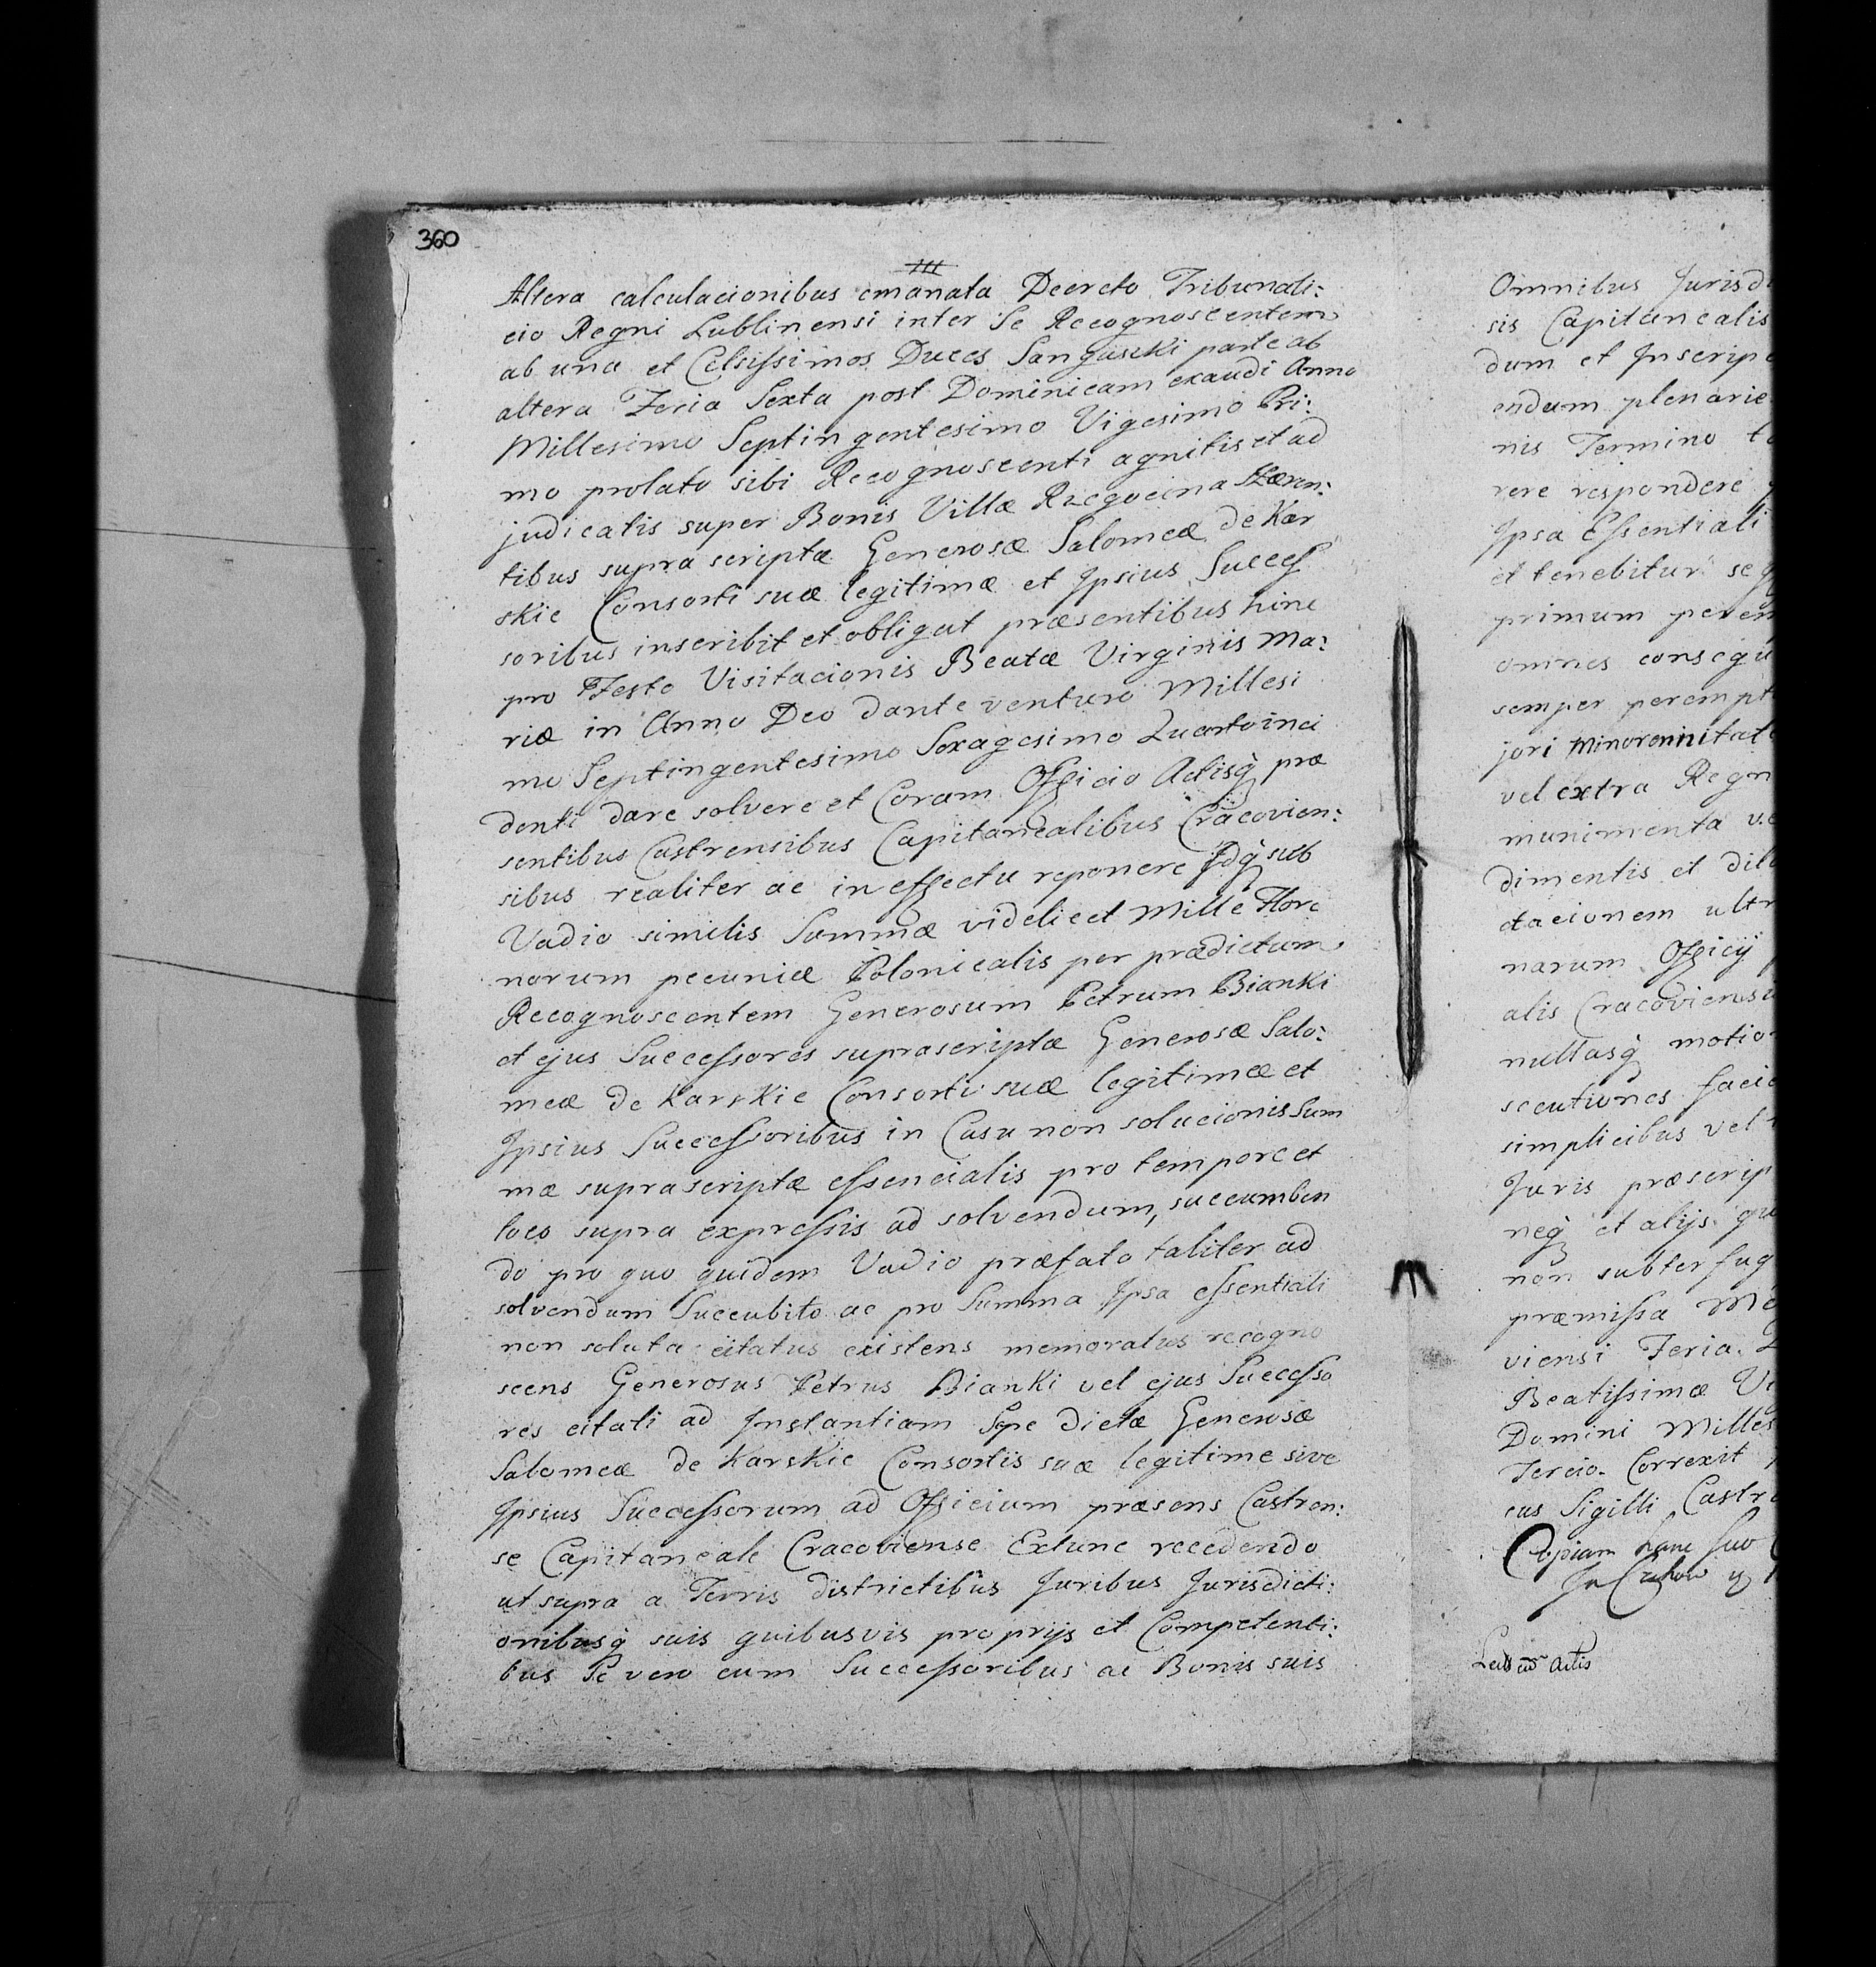 360
III
Altera calculacionibus emanata Decreto Tribunali:
cio Regni Lublinensi inter Se Recognoscentem
ab una et Celsissimos Duces Sanguszki parte ab
altera Feria Sexta post Dominicam exaudi Anno
Millesimo Septingentesimo Vigesimo Pri:
mo prolato sibi Recognoscenti agnitis et ad
judicatis super Bonis Villæ Rzegocina
tibus supra scriptæ Generosæ Salomeæ de Kar
skie Consorti suæ legitimæ et Ipsius Succes
soribus inscribit et obligat præsentibus hinc
pro Festo Visitacionis Beatæ Virginis Ma:
riæ in Anno Deo dante venturo Millesi
mo Septingentesimo Sexagesimo Quarto inci
denti dare solvere et Coram Officio Actisq præ
sentibus Castrensibus Capitanealibus Cracovien:
sibus realiter ac in effectu reponere Idq sub
Vadio similis Summæ videlicet Mille Flore
norum pecuniæ Polonicalis per prædictum
Recognoscentem Generosum Petrum Bianki
et ejus Successores suprascriptæ Generosæ Salo:
meæ de Karskie Consorti suæ legitimæ et
Ipsius Successoribus in Casu non solucionis Sum
mæ supra scriptæ essencialis pro tempore et
loco supra expressis ad solvendum, succumben
do pro quo quidem Vadio præfato taliter ad
solvendum Succubito ac pro Summa Ipsa essentiali
non soluta citatus existens memoratus recogno
scens Generosus Petrus Bianki vel ejus Successo
res citati ad Instantiam Sepe dictæ Generosæ
Salomeæ de Karskie Consortis suæ legitime sive
Ipsius Successorum ad Officium præsens Castren:
se Capitaneale Cracoviense Extunc recedendo
ut supra a Terris districtibus Juribus Jurisdicti:
onibusq suis quibusvis proprijs et Competenti:
bus Se vero cum Successoribus ac Bonis suis
Omnibus Jurisdi
sis Capitanealis
dum et Inscrip
endum plenarie
nis Termino
rere respondere
Ipsa Essentiali
et tenebitur se
primum perem
omnes consequ
semper perempt
jori Minorennitat
vel extra Regn
munimenta
dimentis et dil
tacionem ult
narum Officij
alis Cracoviens
nullasq motio
secutiones faci
simplicibus vel
Juris præscrip
neq et alijs qu
non subterfug
præmissa
viensi Feria
Beatissimæ Vi
Domini Milles
Tercio. Correxit
cus Sigilli Castr
Copiam hanc suo
Actis